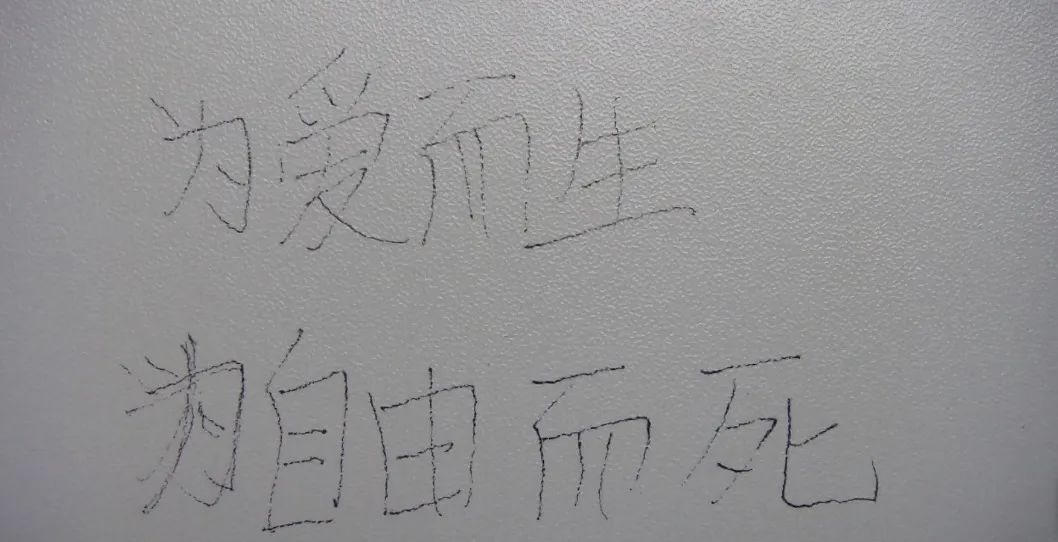 为爱而生
为自由而死